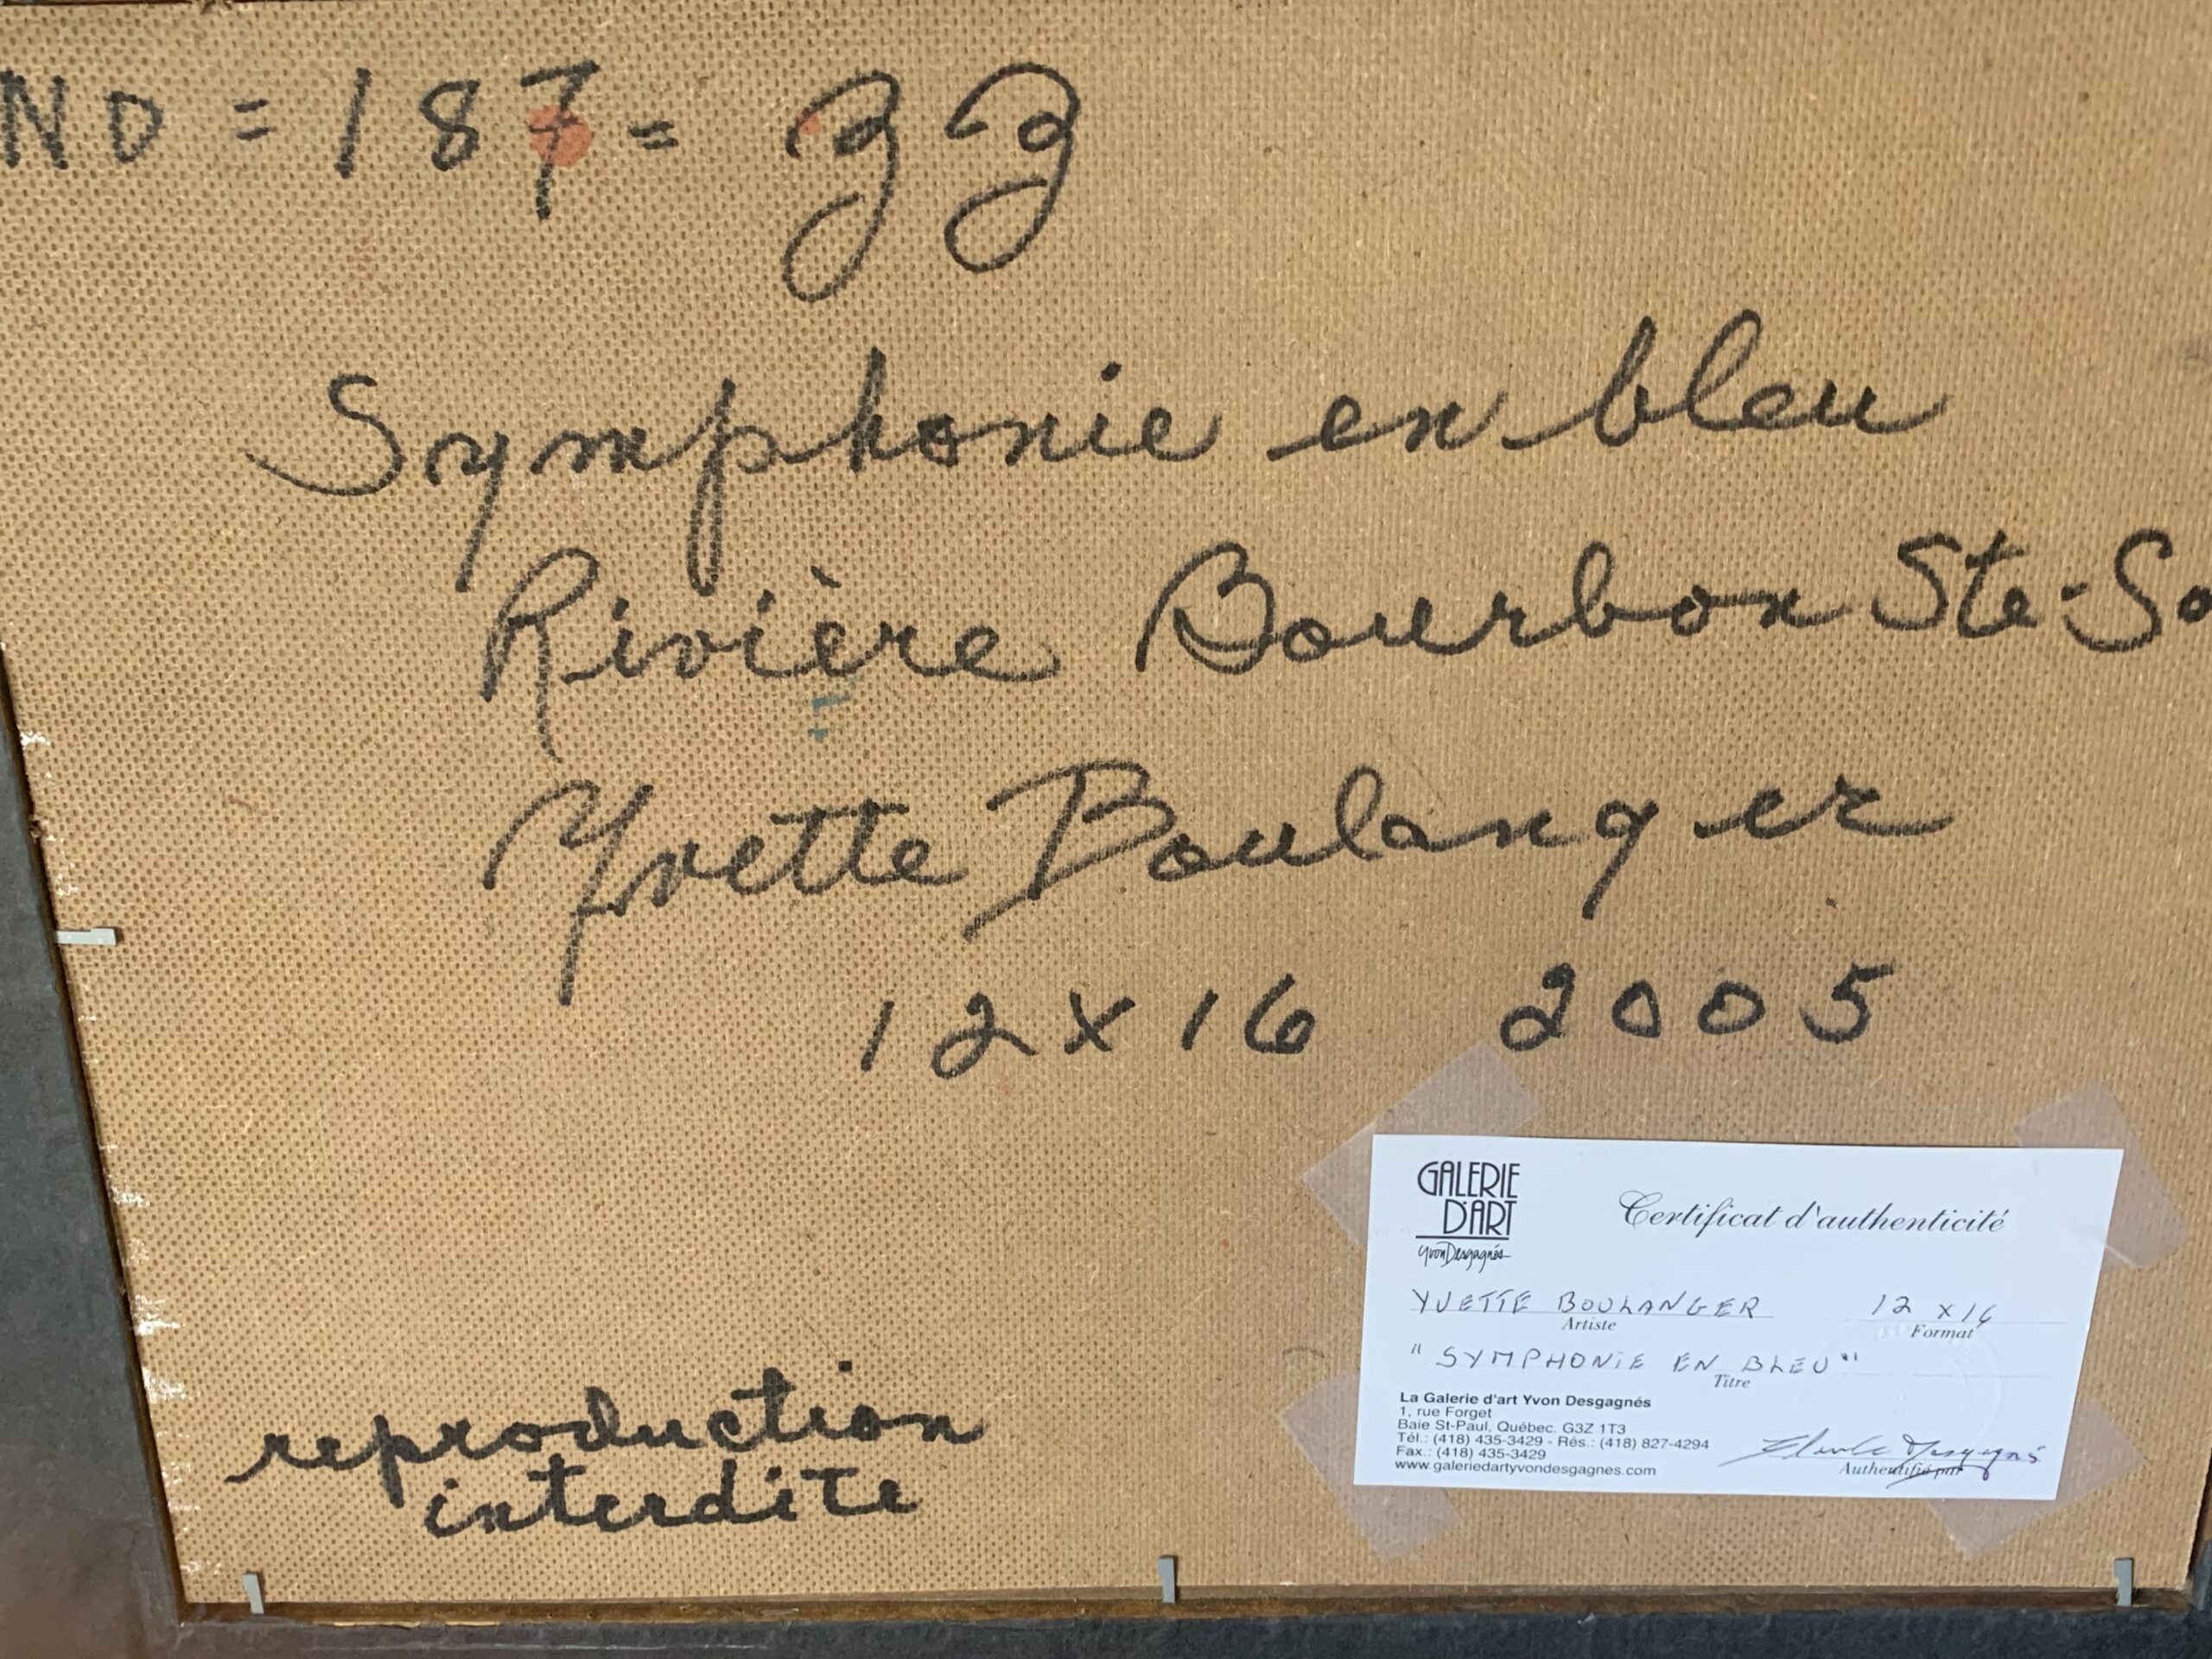 NO = 187 = 33
Symphonie en bleu
Rivière Bourbon Ste-So
Yvette Boulanger
12 x 16 2005
reproduction
interdite
GALERIE
D'ART
Yvon Desgagnés
Certificat d'authenticité
YVETTE BOULANGER 12 x 16
Artiste Format
"SYMPHONIE EN BLEU"
Titre
La Galerie d'art Yvon Desgagnés
1, rue Forget
Baie St-Paul, Québec. G3Z 1T3
Tél.: (418) 435-3429 - Rés.: (418) 827-4294
Fax.: (418) 435-3429
www.galeriedartyvondesgagnes.com
Desgagnés
Authentifié par